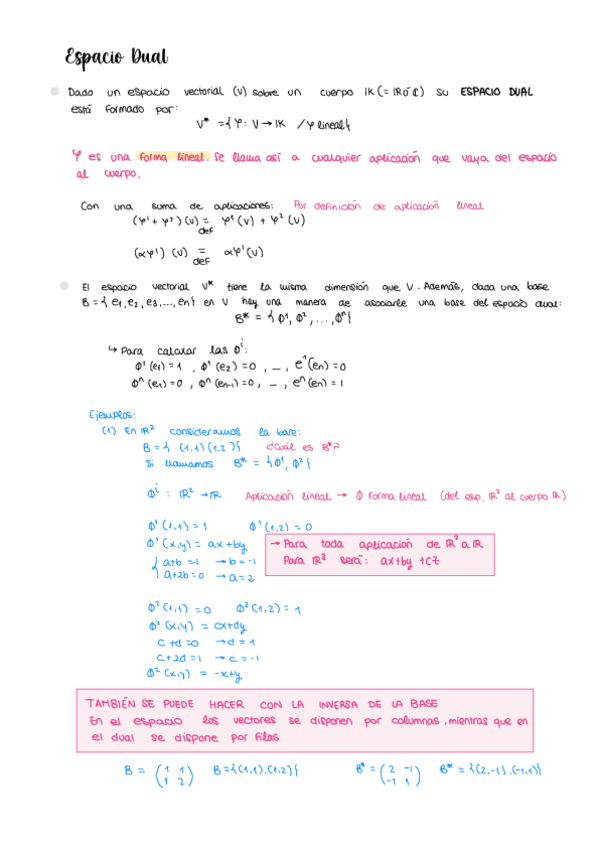 Espacio Dual
Dado un espacio vectorial (V) sobre un cuerpo IK (= IR ó ℂ) su ESPACIO DUAL
está formado por:
V* = { φ: V → IK / φ lineal }
φ es una forma lineal. Se llama así a cualquier aplicación que vaya del espacio
al cuerpo.
Con una suma de aplicaciones: Por definición de aplicación lineal
(φ¹ + φ²)(v) = φ¹(v) + φ²(v)
def
(αφ¹)(v) = αφ¹(v)
def
El espacio vectorial V* tiene la misma dimensión que V. Además, dada una base
B = { e₁, e₂, e₃, ..., en } en V hay una manera de asociarle una base del espacio dual:
B* = { Φ¹, Φ², ..., Φⁿ }
↳ Para calcular las Φⁱ:
Φ¹(e₁) = 1 , Φ¹(e₂) = 0 , ... , e¹(en) = 0
Φⁿ(e₁) = 0 , Φⁿ(en-1) = 0 , ... , eⁿ(en) = 1
Ejemplos:
(1) En IR² consideramos la base:
B = { (1,1) (1,2) } ¿Cuál es B*?
Si llamamos B* = { Φ¹, Φ² }
Φⁱ : IR² → IR Aplicación lineal → Φ forma lineal (del esp. IR² al cuerpo IR)
Φ¹(1,1) = 1 Φ¹(1,2) = 0
Φ¹(x,y) = ax+by → Para toda aplicación de IR² a IR
{ a+b = 1 → b = -1 Para IR³ será: ax+by+cz
a+2b = 0 → a = 2
Φ²(1,1) = 0 Φ²(1,2) = 1
Φ²(x,y) = cx+dy
c+d = 0 → d = 1
c+2d = 1 → c = -1
Φ²(x,y) = -x+y
TAMBIÉN SE PUEDE HACER CON LA INVERSA DE LA BASE
En el espacio los vectores se disponen por columnas, mientras que en
el dual se dispone por filas
B = (1 1 B = {(1,1), (1,2)} B* = (2 -1 B* = {(2,-1), (-1,1)}
1 2) -1 1)